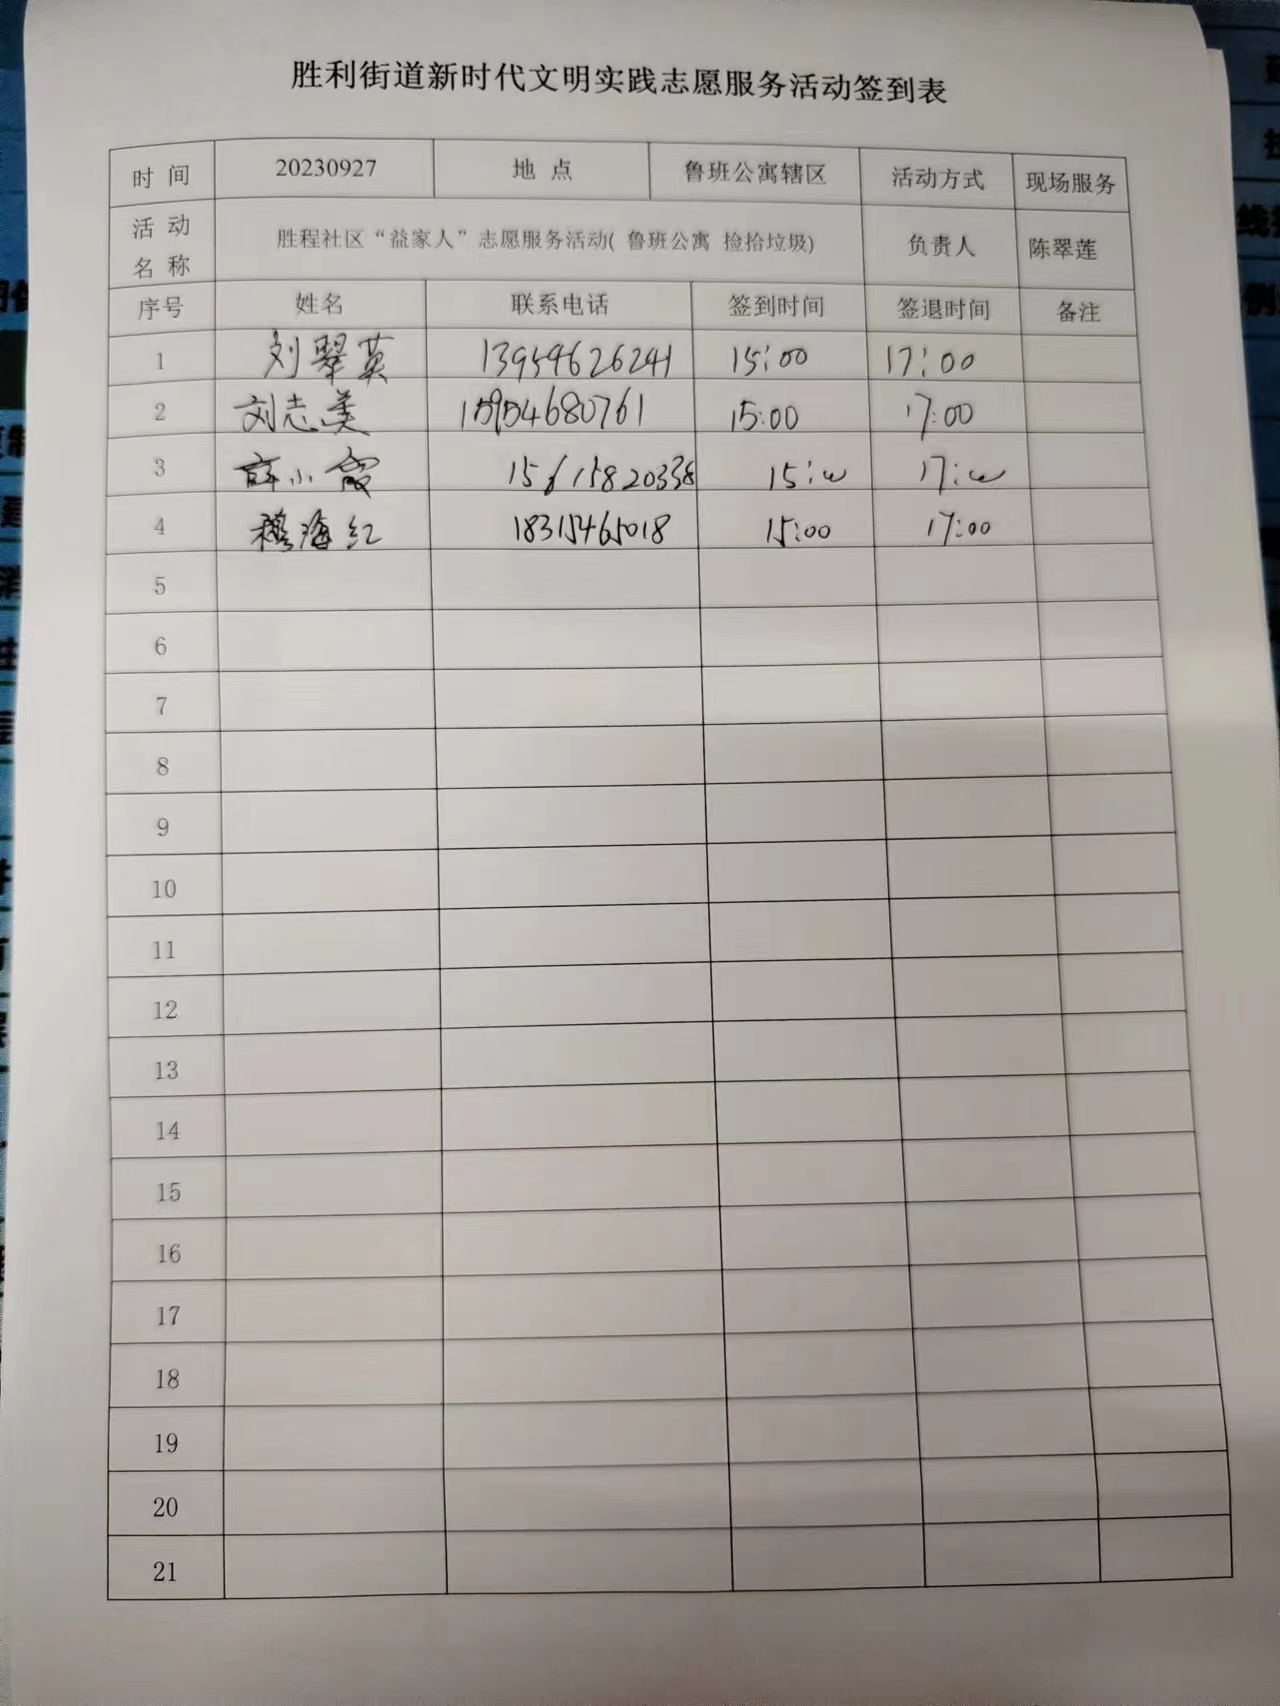 胜利街道新时代文明实践志愿服务活动签到表
时 间 20230927 地 点 鲁班公寓辖区 活动方式 现场服务
活 动 名 称 胜程社区“益家人”志愿服务活动( 鲁班公寓 捡拾垃圾) 负责人 陈翠莲
序号 姓名 联系电话 签到时间 签退时间 备注
1 刘翠英 13954626241 15:00 17:00
2 刘志美 15954680761 15:00 17:00
3 薛小霞 15615820338 15:00 17:00
4 穆海红 18315465018 15:00 17:00
5
6
7
8
9
10
11
12
13
14
15
16
17
18
19
20
21